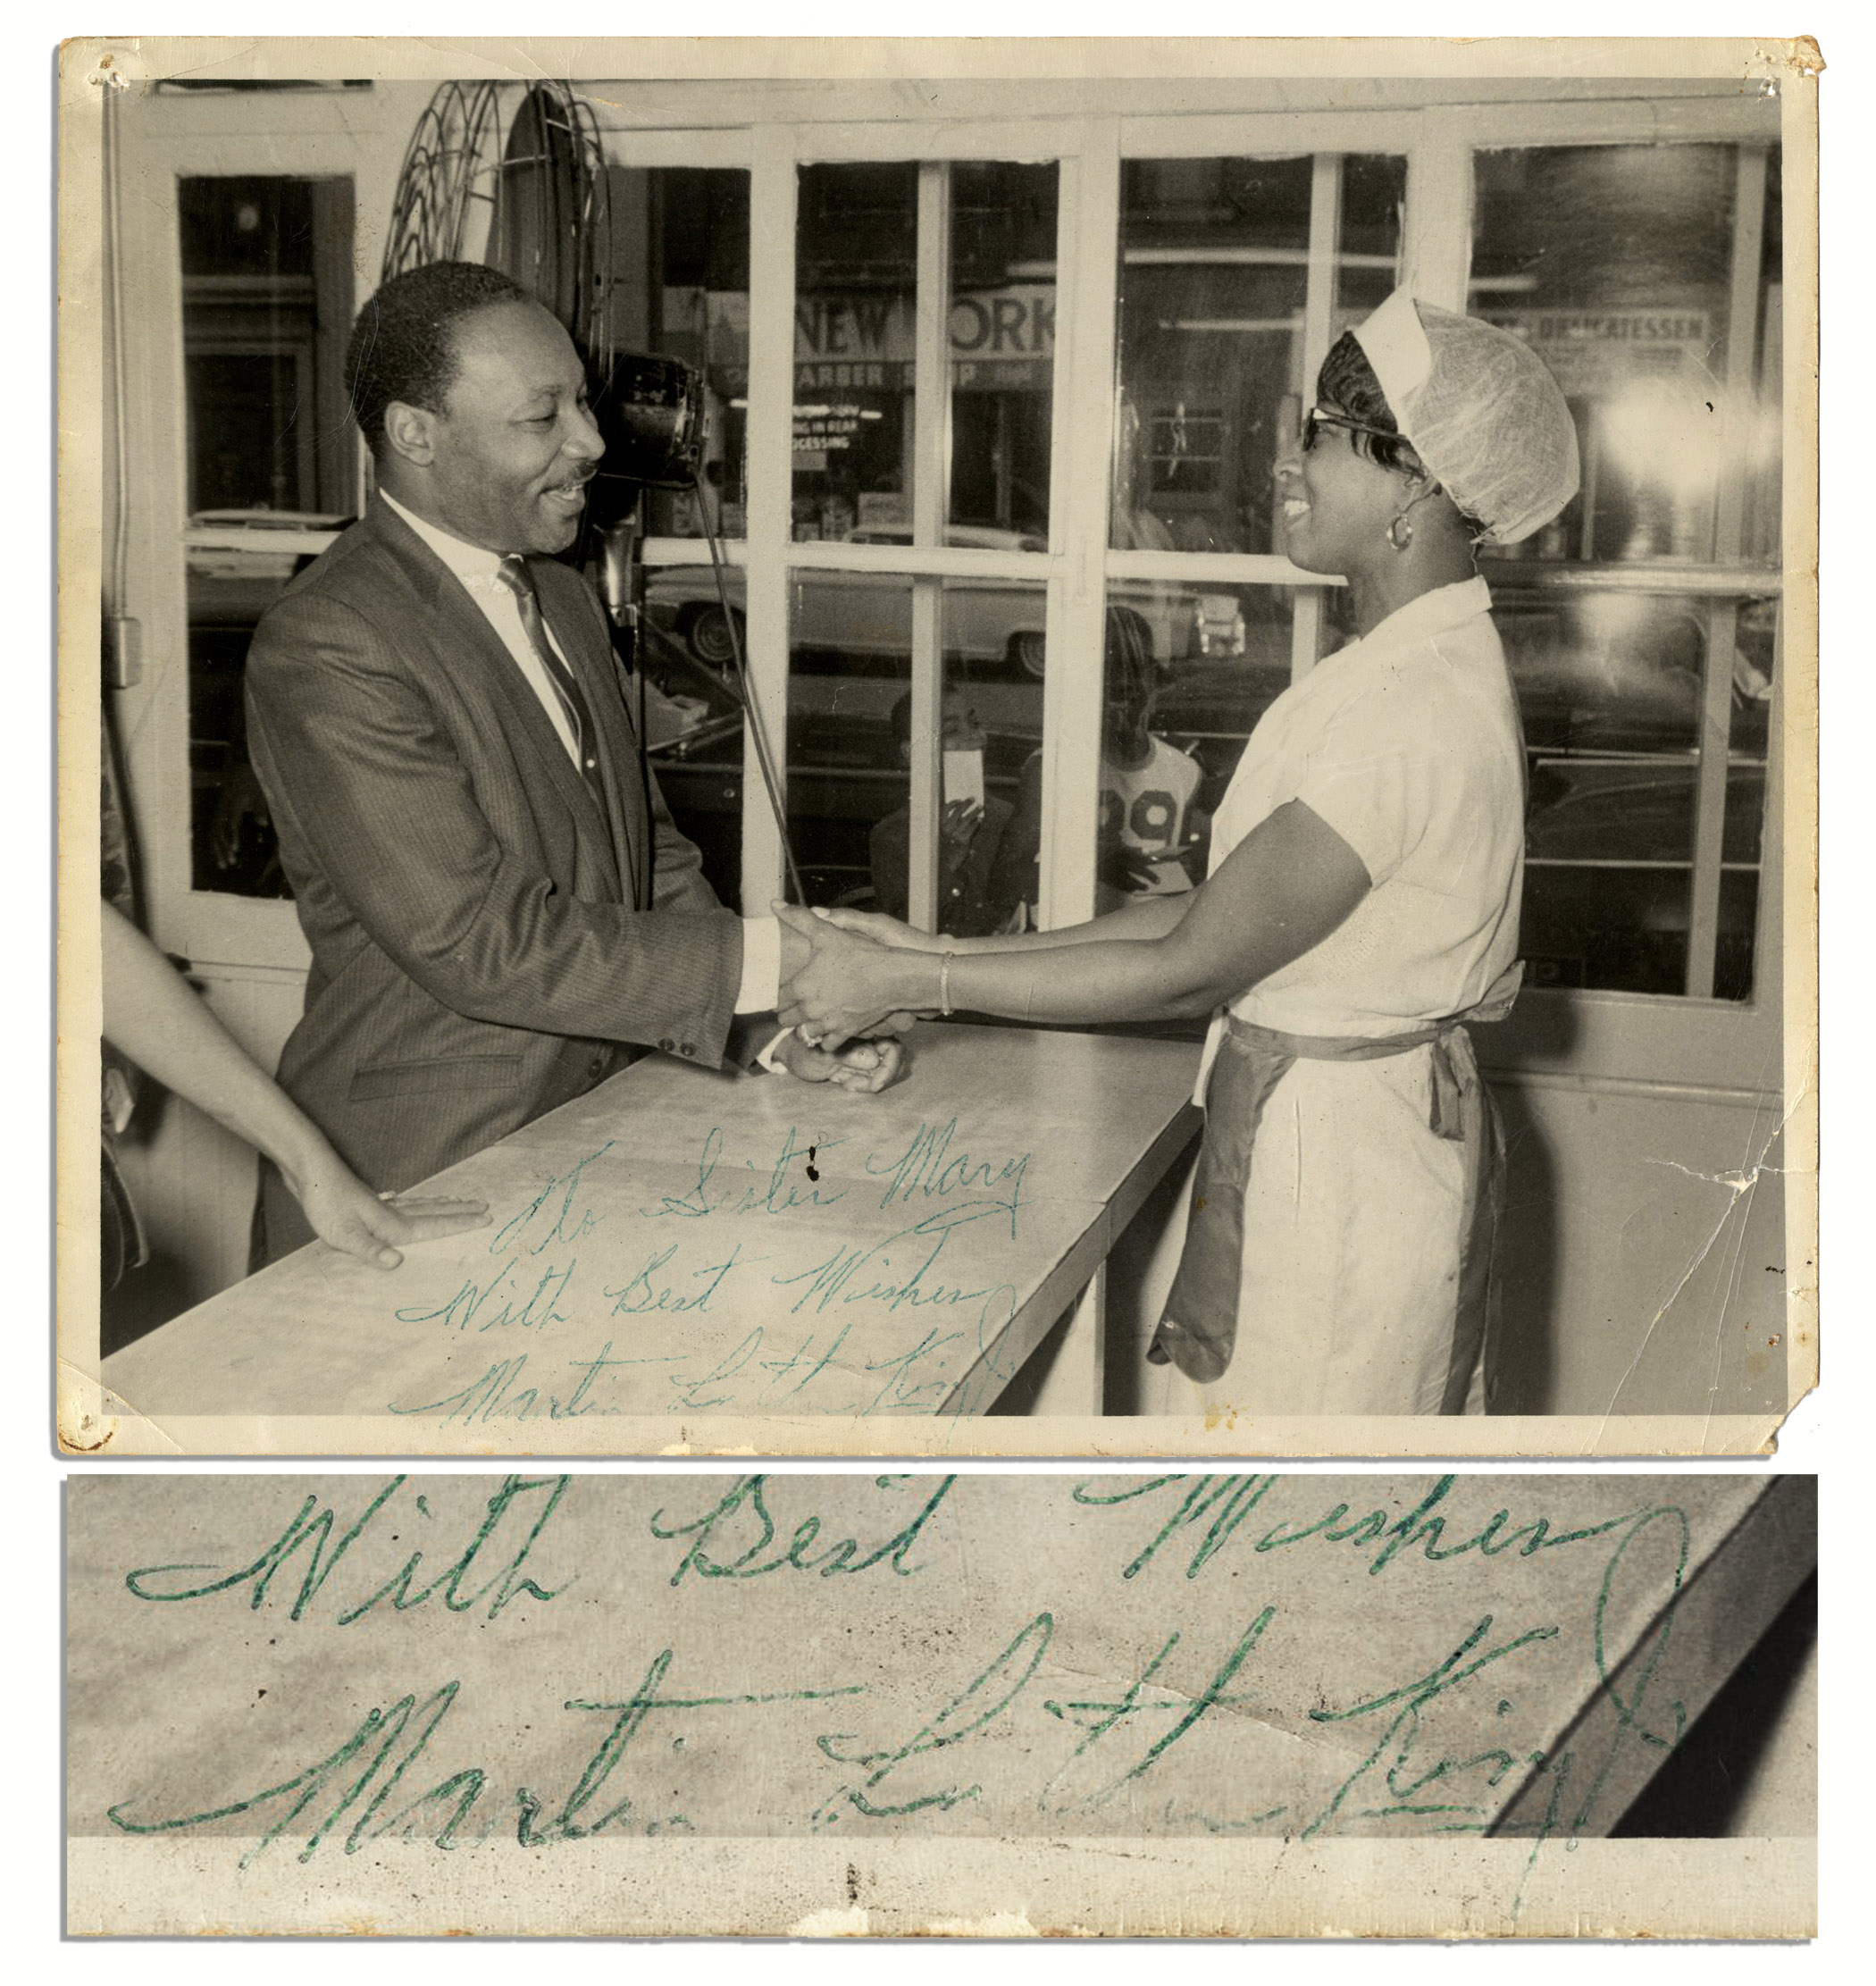 NEW YORK
BARBER SHOP
NG IN REAR
OCESSING
DELICATESSEN
09
To Sister Mary
With Best Wishes
Martin Luther King Jr
With Best Wishes
Martin Luther King Jr